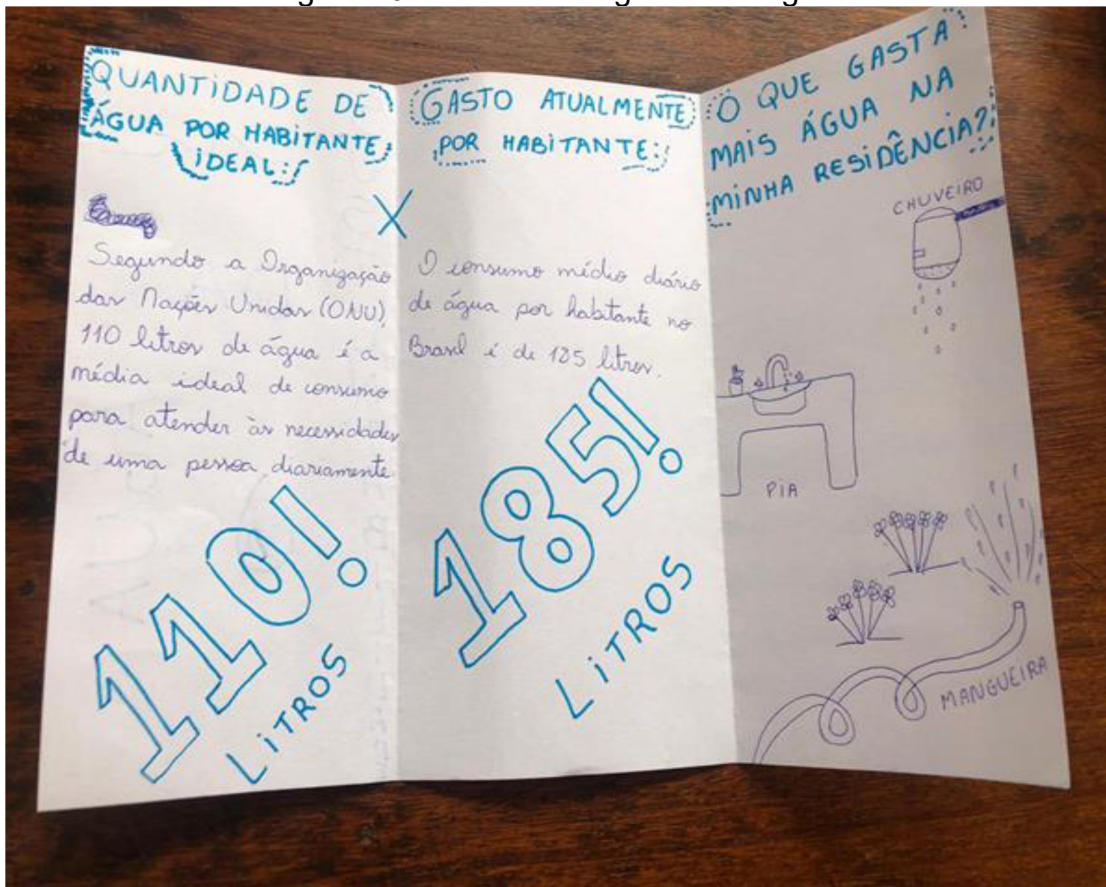 QUANTIDADE DE
ÁGUA POR HABITANTE
IDEAL:
Segundo a Organização
das Nações Unidas (ONU),
110 litros de água é a
média ideal de consumo
para atender às necessidades
de uma pessoa diariamente.
110!
LITROS
X
GASTO ATUALMENTE
POR HABITANTE:
O consumo médio diário
de água por habitante no
Brasil é de 185 litros.
185!
LITROS
O QUE GASTA
MAIS ÁGUA NA
MINHA RESIDÊNCIA?
CHUVEIRO
PIA
MANGUEIRA